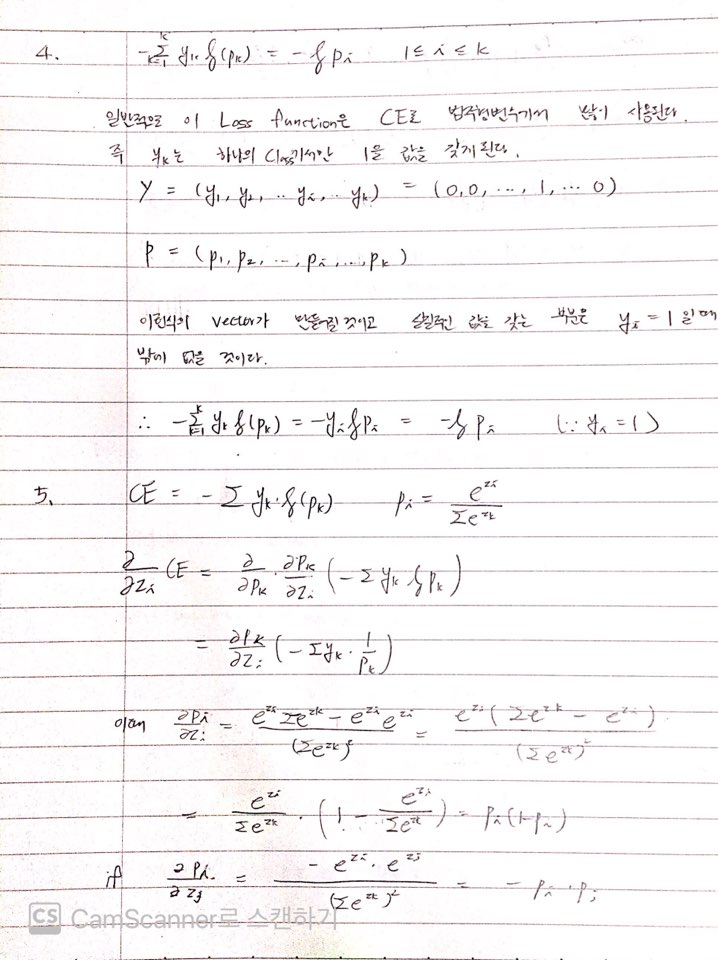 4. -Σ_{k=1}^{k} y_k log(p_k) = -log p_i    1 ≤ i ≤ k
일반적으로 이 Loss function은 CE로 범주형변수에서 많이 사용된다.
즉 y_k는 하나의 Class에서만 1을 값을 갖게된다.
Y = (y_1, y_2, ·· y_i, ·· y_k) = (0, 0, ···, 1, ··· 0)
P = (p_1, p_2, ..., p_i, ..., p_k)
이런식의 vector가 만들어질 것이고 실질적인 값을 갖는 부분은 y_i = 1 일때
밖에 없을 것이다.
∴ -Σ_{k=1}^{k} y_k log(p_k) = -y_i log p_i = -log p_i    (∵ y_i = 1)
5. CE = -Σ y_k · log(p_k)    p_i = e^{z_i} / Σe^{z_k}
∂/∂z_i CE = ∂/∂p_k · ∂p_k/∂z_i (-Σ y_k log p_k)
= ∂p_k/∂z_i (-Σ y_k · 1/p_k)
이때 ∂p_i/∂z_i = (e^{z_i} Σe^{z_k} - e^{z_i} e^{z_i}) / (Σe^{z_k})^2 = e^{z_i} (Σe^{z_k} - e^{z_i}) / (Σe^{z_k})^2
= e^{z_i} / Σe^{z_k} · (1 - e^{z_i} / Σe^{z_k}) = p_i(1-p_i)
if ∂p_i/∂z_j = -e^{z_i} · e^{z_j} / (Σe^{z_k})^2 = -p_i · p_j
CS CamScanner로 스캔하기